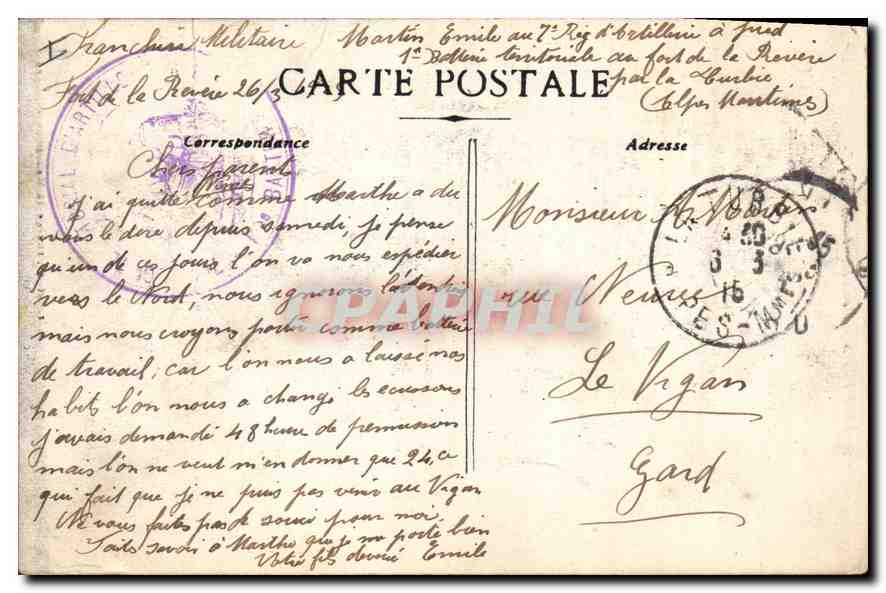 Franchise Militaire Martin Emile au 7e Rég d'Artillerie à pied
1re Batterie territoriale au fort de la Revère
Fort de la Revère 26/3 par la Turbie
(Alpes Maritimes)
CARTE POSTALE
Correspondance
Adresse
Chers parents
J'ai quitté Nice comme Marthe a du
vous le dire depuis samedi, je pense
qu'un de ces jours l'on va nous expédier
vers le Nord, nous ignorons la
mais nous croyons partir comme batterie
de travail, car l'on nous a laissé nos
habits l'on nous a changé les ecussons
j'avais demandé 48 heures de permission
mais l'on ne veut m'en donner que 24, ce
qui fait que je ne puis pas venir au Vigan
Ne vous faites pas de souci pour moi,
Faits savoir à Marthe que je me porte bien
Votre fils dévoué Emile
Monsieur Martin
rue Neuve
Le Vigan
Gard
LA TURBIE
6 3
15
CPAPHIL